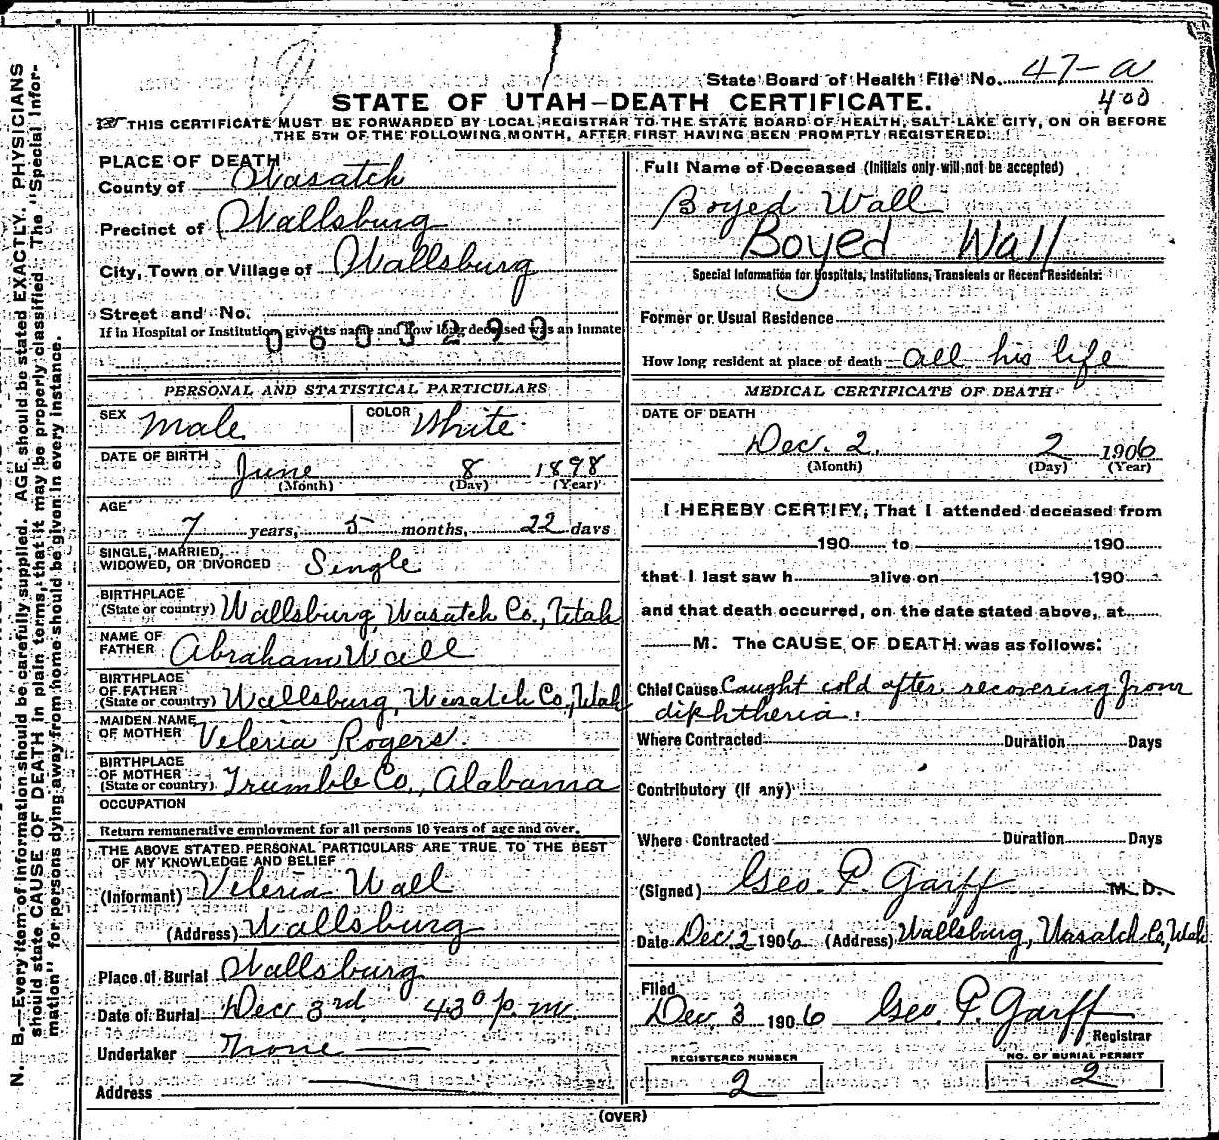 State Board of Health File No. 47-a
400
STATE OF UTAH—DEATH CERTIFICATE.
THIS CERTIFICATE MUST BE FORWARDED BY LOCAL REGISTRAR TO THE STATE BOARD OF HEALTH, SALT LAKE CITY, ON OR BEFORE
THE 5TH OF THE FOLLOWING MONTH, AFTER FIRST HAVING BEEN PROMPTLY REGISTERED.
N. B.—Every item of information should be carefully supplied. AGE should be stated EXACTLY. PHYSICIANS
should state CAUSE OF DEATH in plain terms, that it may be properly classified. The "Special Infor-
mation" for persons dying away from home should be given in every instance.
PLACE OF DEATH
County of Wasatch
Precinct of Wallsburg
City, Town or Village of Wallsburg
Street and No.
If in Hospital or Institution, give its name and how long deceased was an inmate
0603290
PERSONAL AND STATISTICAL PARTICULARS
SEX Male COLOR White
DATE OF BIRTH
June 8 1898
(Month) (Day) (Year)
AGE
7 years, 5 months, 22 days
SINGLE, MARRIED,
WIDOWED, OR DIVORCED Single
BIRTHPLACE
(State or country) Wallsburg, Wasatch Co., Utah
NAME OF
FATHER Abraham Wall
BIRTHPLACE
OF FATHER
(State or country) Wallsburg, Wasatch Co., Utah
MAIDEN NAME
OF MOTHER Veleria Rogers.
BIRTHPLACE
OF MOTHER
(State or country) Trumble Co., Alabama
OCCUPATION
Return remunerative employment for all persons 10 years of age and over.
THE ABOVE STATED PERSONAL PARTICULARS ARE TRUE TO THE BEST
OF MY KNOWLEDGE AND BELIEF
(Informant) Veleria Wall
(Address) Wallsburg
Place of Burial Wallsburg
Date of Burial Dec 3rd. 430 p.m.
Undertaker None
Address
Full Name of Deceased (Initials only will not be accepted)
Boyed Wall
Boyed Wall
Special Information for Hospitals, Institutions, Transients or Recent Residents:
Former or Usual Residence
How long resident at place of death all his life
MEDICAL CERTIFICATE OF DEATH
DATE OF DEATH
Dec. 2. 2 1906
(Month) (Day) (Year)
I HEREBY CERTIFY, That I attended deceased from
190 to 190
that I last saw h alive on 190
and that death occurred, on the date stated above, at
M. The CAUSE OF DEATH was as follows:
Chief Cause Caught cold after recovering from
diphtheria.
Where Contracted Duration Days
Contributory (if any)
Where Contracted Duration Days
(Signed) Geo. P. Garff M. D.
Date Dec. 2 1906 (Address) Wallsburg, Wasatch Co, Utah
Filed
Dec, 3 1906 Geo. P. Garff
Registrar
REGISTERED NUMBER
2
NO. OF BURIAL PERMIT
2
(OVER)